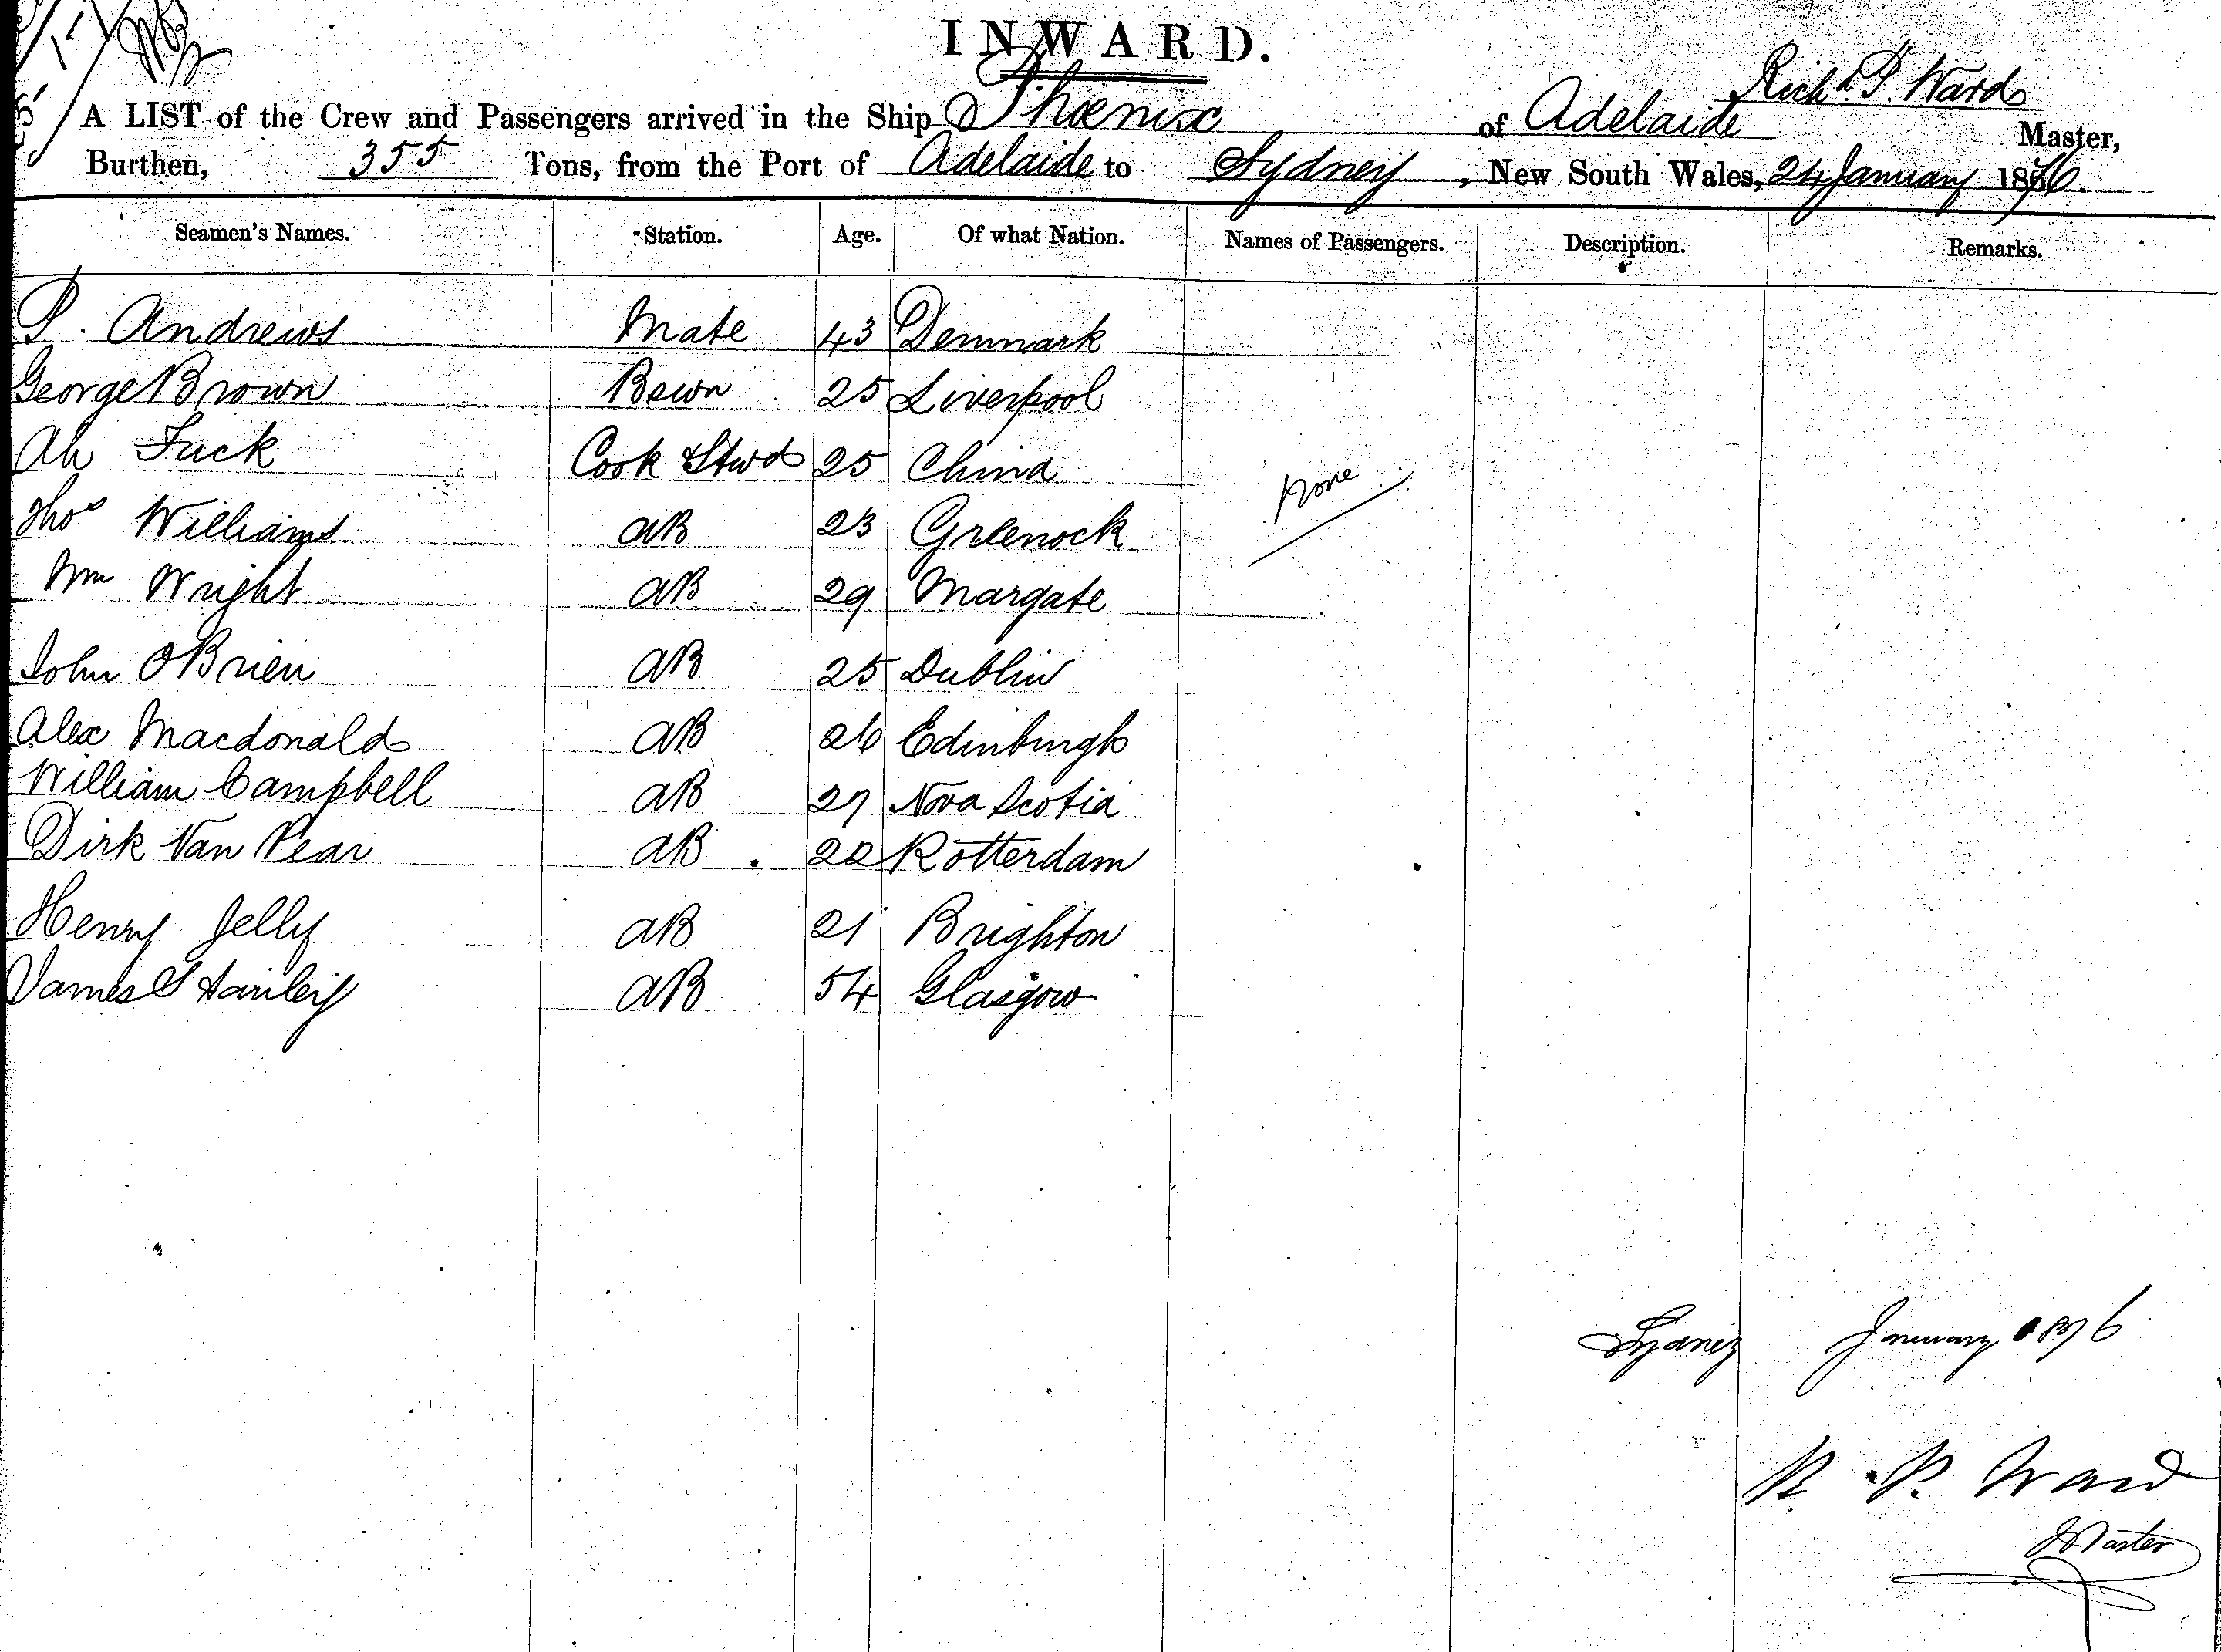 INWARD.
Richd P. Ward
A LIST of the Crew and Passengers arrived in the Ship Phœnix of Adelaide Master,
Burthen, 355 Tons, from the Port of Adelaide to Sydney, New South Wales, 24 January 1876.
Seamen's Names. Station. Age. Of what Nation. Names of Passengers. Description. Remarks.
P. Andrews Mate 43 Denmark
George Brown Boswn 25 Liverpool
Ah Fuck Cook & Stwd 25 China
None
Thos Williams AB 23 Greenock
Wm Wright AB 29 Margate
John OBrien AB 25 Dublin
Alex Macdonald AB 26 Edinburgh
William Campbell AB 27 Nova Scotia
Dirk Van Pear AB 22 Rotterdam
Henry Jelly AB 21 Brighton
James AB 54 Glasgow
Sydney January 1876
R. P. Ward
Master